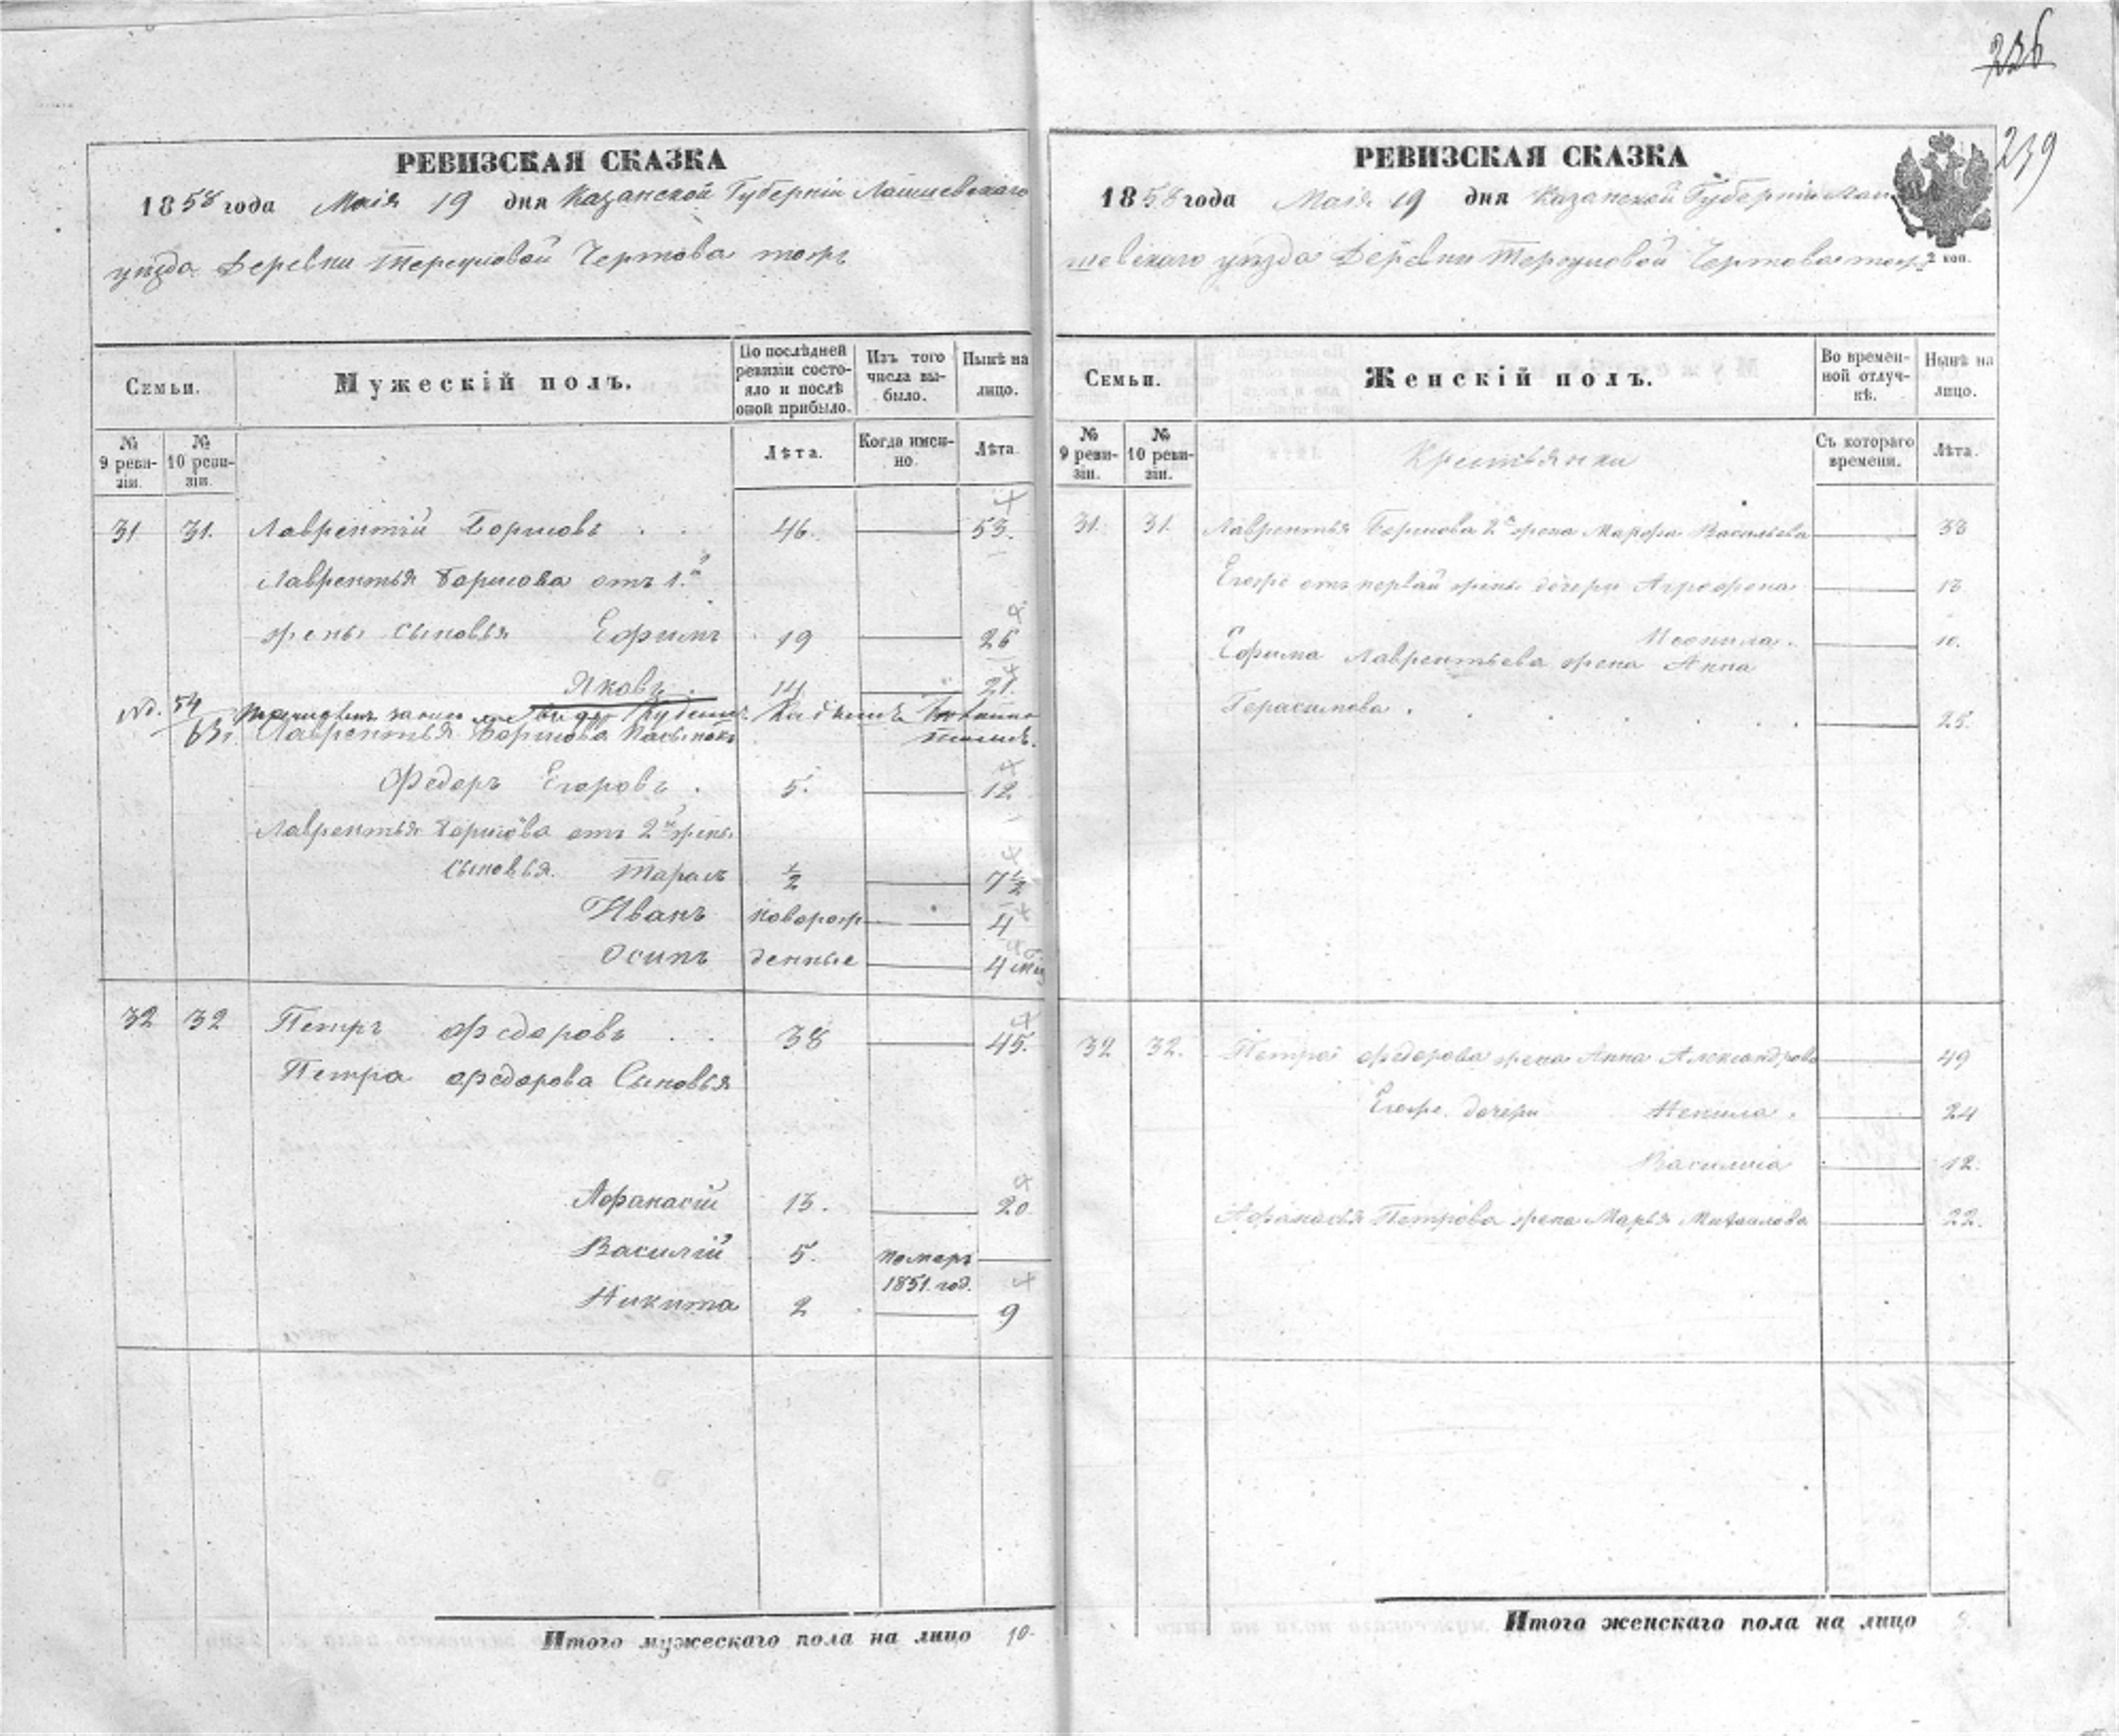 226
239
РЕВИЗСКАЯ СКАЗКА
1858 года Маія 19 дня Казанской Губерніи Лаишевскаго
уѣзда Деревни Чертова тожъ
Семьи.
Мужескій полъ.
По послѣдней ревизіи состояло и послѣ оной прибыло.
Изъ того числа выбыло.
Нынѣ на лицо.
№ 9 ревизіи.
№ 10 ревизіи.
Лѣта.
Когда именно.
Лѣта.
31 31. Лаврентій Борисовъ . . 46. 53.
Лаврентья Борисова отъ 1.й
жены сыновья Ефимъ 19 26
Яковъ . 14 21.
№. 54
63. Лаврентья Борисова пасынокъ
Федоръ Егоровъ . 5. 12
Лаврентья Борисова отъ 2й жены
сыновья. Тарасъ ½ 7½
Иванъ новорож 4
Осипъ денные 4 мѣс
32 32 Петръ Федоровъ . . 38 45.
Петра Федорова Сыновья
Афанасій 13. 20
Василій 5. померъ
1851. год.
Никита 2 9
Итого мужескаго пола на лицо 10.
РЕВИЗСКАЯ СКАЗКА
1858 года Маія 19 дня Казанской Губерніи Лаи
шевскаго уѣзда Деревни Чертова тожъ
2 коп.
Семьи.
Женскій полъ.
Во временной отлучкѣ.
Нынѣ на лицо.
№ 9 ревизіи.
№ 10 ревизіи.
Крестьянки
Съ котораго времени.
Лѣта.
31. 31. Лаврентья Борисова 2я жена Марфа Васильева 33
Егоже отъ первой жены дочери Агрофена 13
Неонила . 10.
Ефима Лаврентьева жена Анна
Герасимова . . . . . . 25.
32 32. Петра Федорова жена Анна Александрова 49
Егоже дочери Ненила . 24
Василиса 12.
Афанасья Петрова жена Марья Михаилова 22.
Итого женскаго пола на лицо 8.